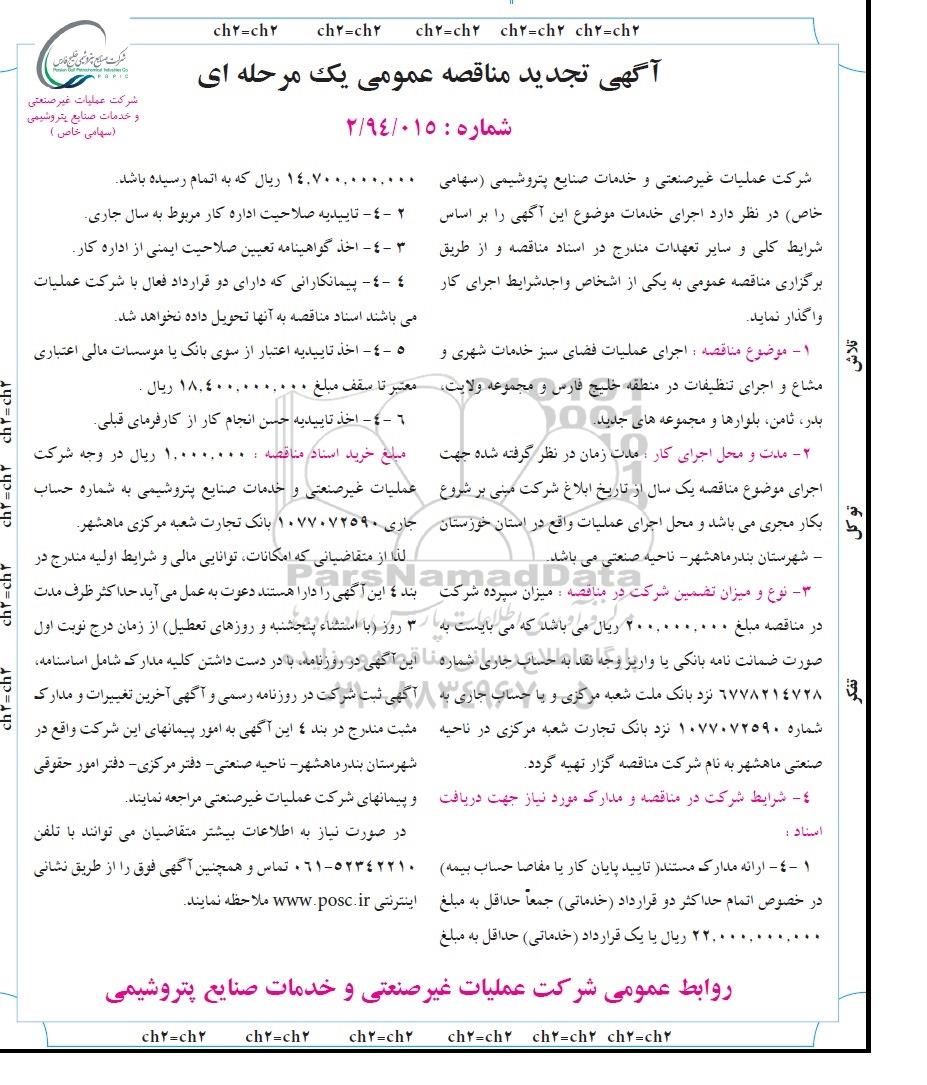 ch۲=ch۲ ch۲=ch۲ ch۲=ch۲ ch۲=ch۲ ch۲=ch۲
شرکت صنایع پتروشیمی خلیج فارس
Persian Gulf Petrochemical Industries Co.
P G P I C
شرکت عملیات غیرصنعتی
و خدمات صنایع پتروشیمی
(سهامی خاص )
آگهی تجدید مناقصه عمومی یک مرحله ای
شماره : ۲/۹٤/۰۱۵
شرکت عملیات غیرصنعتی و خدمات صنایع پتروشیمی (سهامی
خاص) در نظر دارد اجرای خدمات موضوع این آگهی را بر اساس
شرایط کلی و سایر تعهدات مندرج در اسناد مناقصه و از طریق
برگزاری مناقصه عمومی به یکی از اشخاص واجدشرایط اجرای کار
واگذار نماید.
۱- موضوع مناقصه : اجرای عملیات فضای سبز خدمات شهری و
مشاع و اجرای تنظیفات در منطقه خلیج فارس و مجموعه ولایت،
بدر، ثامن، بلوارها و مجموعه های جدید.
۲- مدت و محل اجرای کار : مدت زمان در نظر گرفته شده جهت
اجرای موضوع مناقصه یک سال از تاریخ ابلاغ شرکت مبنی بر شروع
بکار مجری می باشد و محل اجرای عملیات واقع در استان خوزستان
– شهرستان بندرماهشهر- ناحیه صنعتی می باشد.
۳- نوع و میزان تضمین شرکت در مناقصه : میزان سپرده شرکت
در مناقصه مبلغ ۲۰۰,۰۰۰,۰۰۰ ریال می باشد که می بایست به
صورت ضمانت نامه بانکی یا واریز وجه نقد به حساب جاری شماره
۶۷۷۸۲۱٤۷۲۸ نزد بانک ملت شعبه مرکزی و یا حساب جاری به
شماره ۱۰۷۷۰۷۲۵۹۰ نزد بانک تجارت شعبه مرکزی در ناحیه
صنعتی ماهشهر به نام شرکت مناقصه گزار تهیه گردد.
٤- شرایط شرکت در مناقصه و مدارک مورد نیاز جهت دریافت
اسناد :
۱ -٤- ارائه مدارک مستند( تایید پایان کار یا مفاصا حساب بیمه)
در خصوص اتمام حداکثر دو قرارداد (خدماتی) جمعاً حداقل به مبلغ
۲۲,۰۰۰,۰۰۰,۰۰۰ ریال یا یک قرارداد (خدماتی) حداقل به مبلغ
۱٤,۷۰۰,۰۰۰,۰۰۰ ریال که به اتمام رسیده باشد.
۲ -٤- تاییدیه صلاحیت اداره کار مربوط به سال جاری.
۳ -٤- اخذ گواهینامه تعیین صلاحیت ایمنی از اداره کار.
٤ -٤- پیمانکارانی که دارای دو قرارداد فعال با شرکت عملیات
می باشند اسناد مناقصه به آنها تحویل داده نخواهد شد.
۵ -٤- اخذ تاییدیه اعتبار از سوی بانک یا موسسات مالی اعتباری
معتبر تا سقف مبلغ ۱۸,٤۰۰,۰۰۰,۰۰۰ ریال .
۶ -٤- اخذ تاییدیه حسن انجام کار از کارفرمای قبلی.
مبلغ خرید اسناد مناقصه : ۱,۰۰۰,۰۰۰ ریال در وجه شرکت
عملیات غیرصنعتی و خدمات صنایع پتروشیمی به شماره حساب
جاری ۱۰۷۷۰۷۲۵۹۰ بانک تجارت شعبه مرکزی ماهشهر.
لذا از متقاضیانی که امکانات، توانایی مالی و شرایط اولیه مندرج در
بند ٤ این آگهی را دارا هستند دعوت به عمل می آید حداکثر ظرف مدت
۳ روز (با استثناء پنجشنبه و روزهای تعطیل) از زمان درج نوبت اول
این آگهی در روزنامه، با در دست داشتن کلیه مدارک شامل اساسنامه،
آگهی ثبت شرکت در روزنامه رسمی و آگهی آخرین تغییرات و مدارک
مثبت مندرج در بند ٤ این آگهی به امور پیمانهای این شرکت واقع در
شهرستان بندرماهشهر- ناحیه صنعتی- دفتر مرکزی- دفتر امور حقوقی
و پیمانهای شرکت عملیات غیرصنعتی مراجعه نمایند.
در صورت نیاز به اطلاعات بیشتر متقاضیان می توانند با تلفن
۰۶۱-۵۲۳٤۲۲۱۰ تماس و همچنین آگهی فوق را از طریق نشانی
اینترنتی www.posc.ir ملاحظه نمایند.
ParsNamadData
پایگاه اطلاع رسانی مناقصه و مزایده
۰۲۱-۸۸۳٤۹۶۷۰-۵
تلاش
توکل
تفکر
ch۲=ch۲
ch۲=ch۲
ch۲=ch۲
ch۲=ch۲
روابط عمومی شرکت عملیات غیرصنعتی و خدمات صنایع پتروشیمی
ch۲=ch۲ ch۲=ch۲ ch۲=ch۲ ch۲=ch۲ ch۲=ch۲ ch۲=ch۲